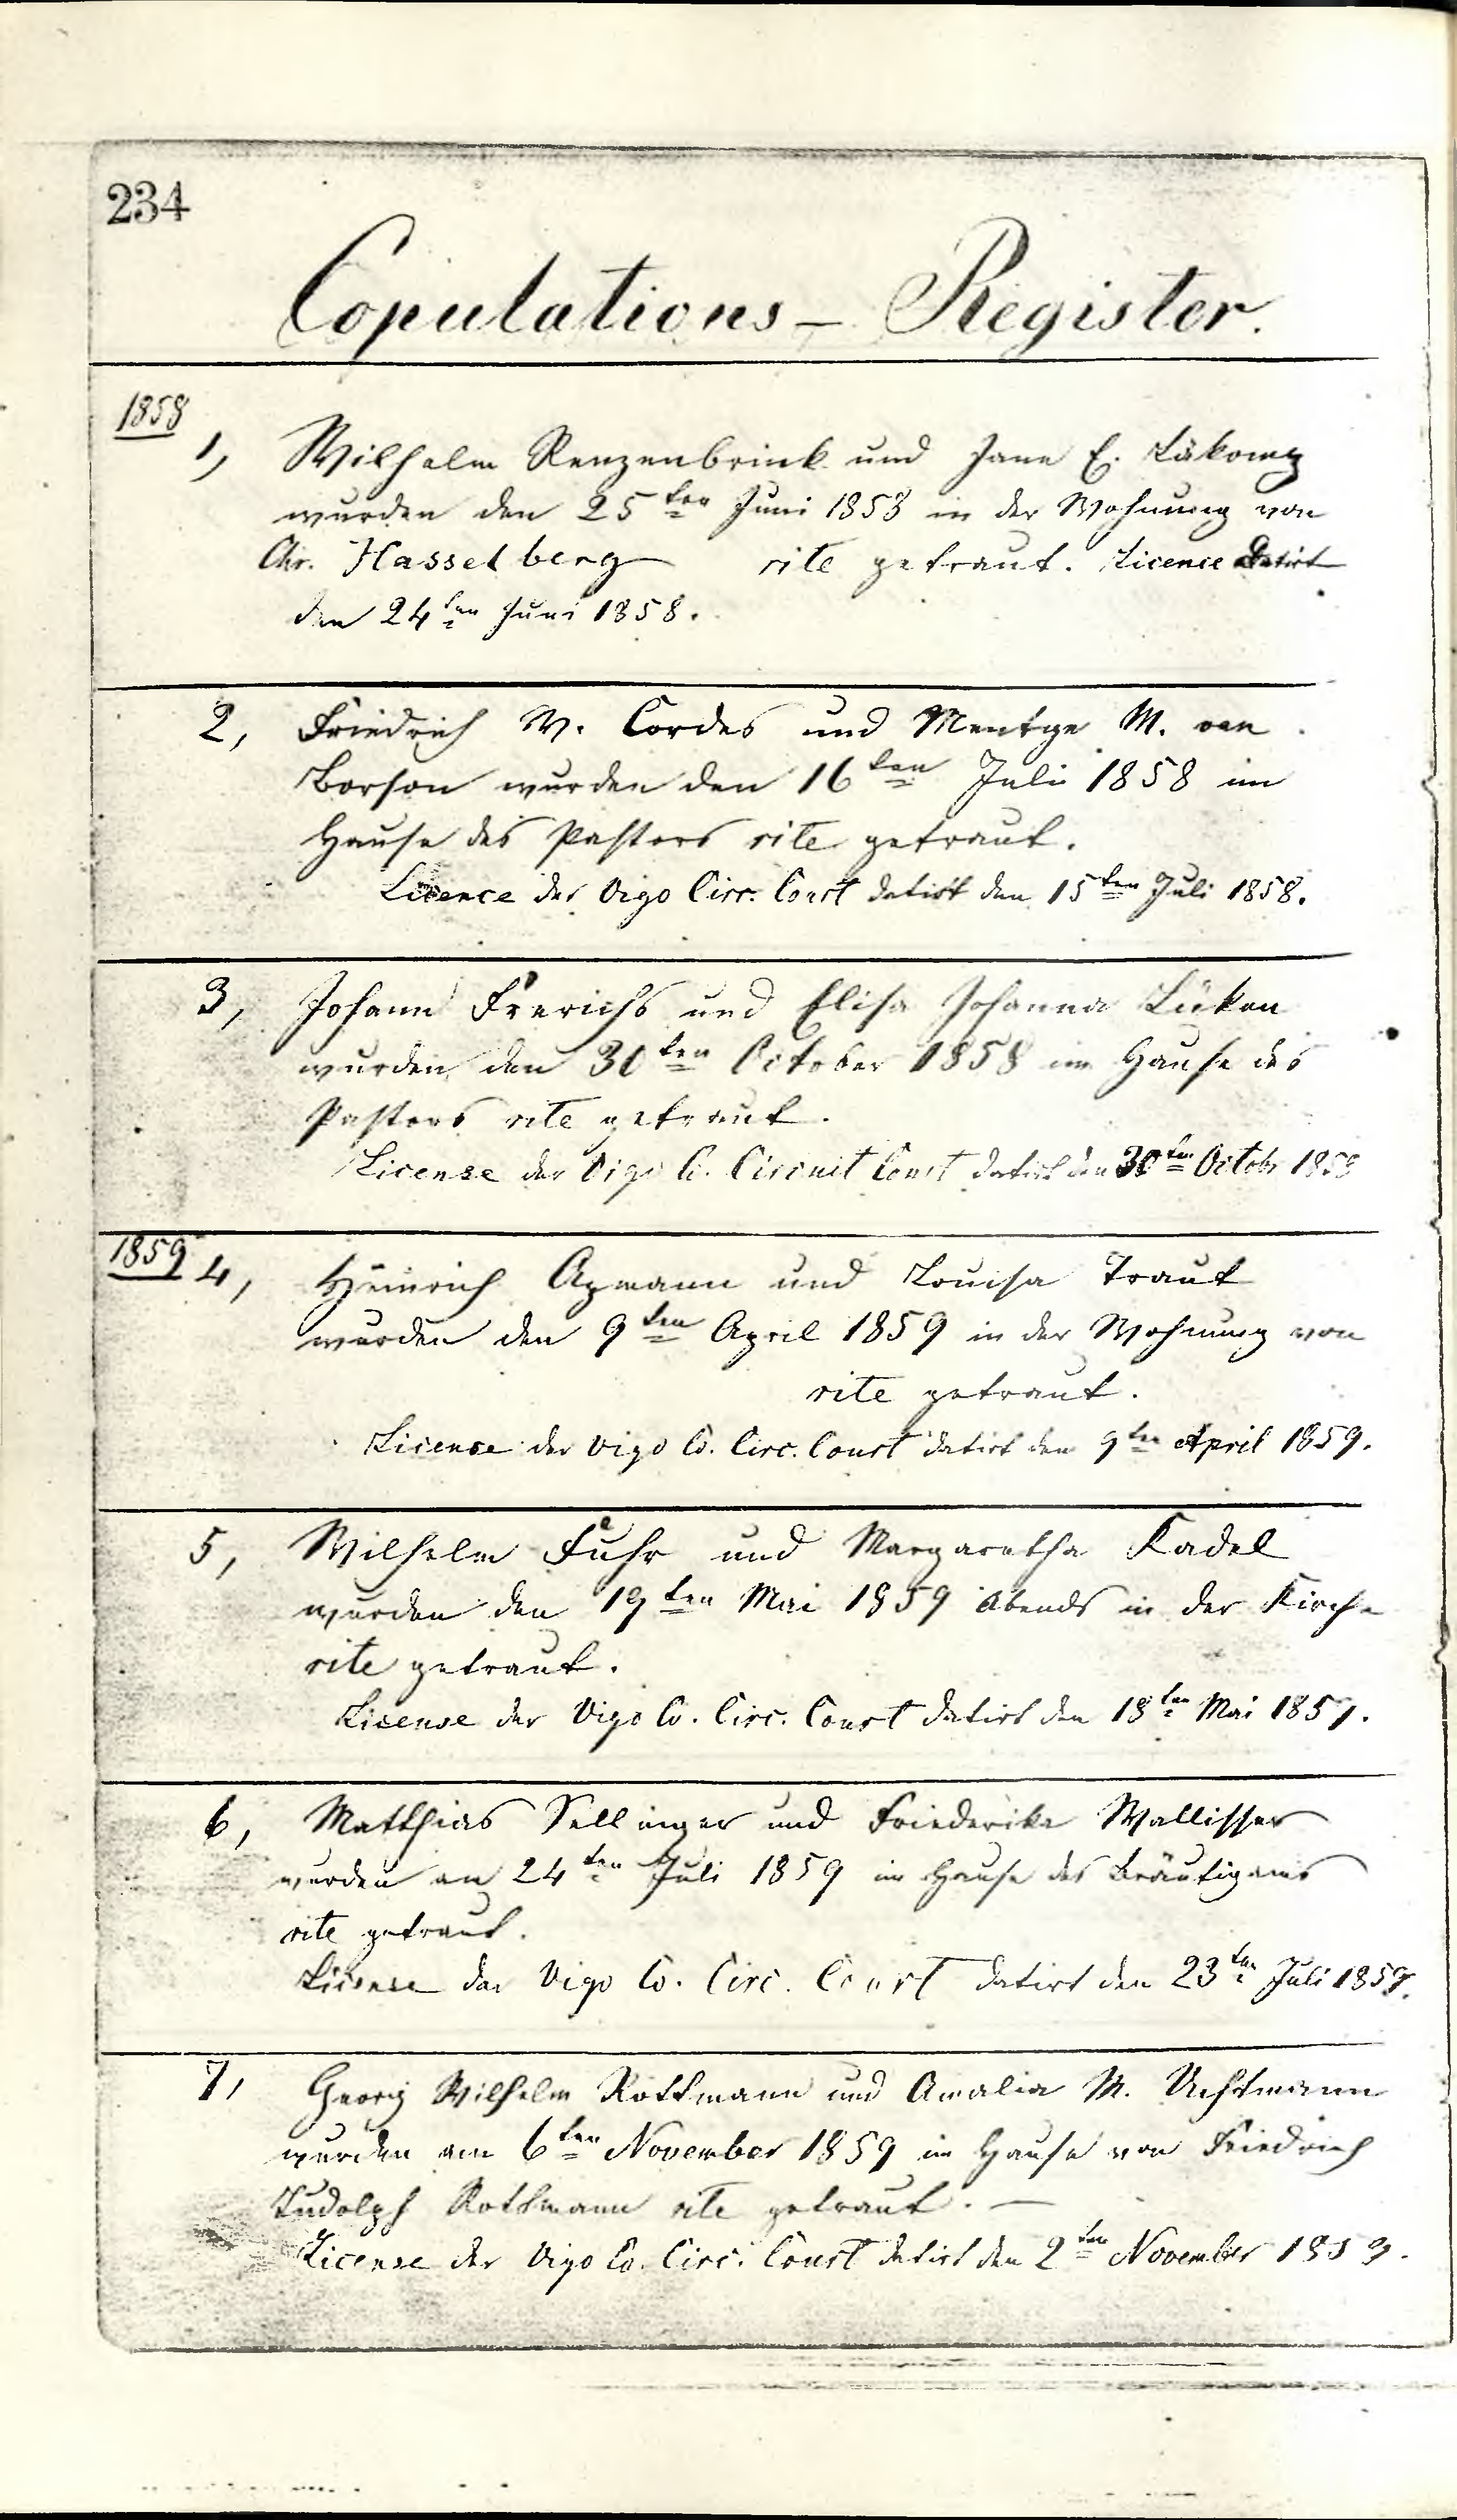 234
Copulations – Register.
1858
1, Wilhelm Renzenbrink und Jane E.
wurden den 25ten Juni 1858 in der Wohnung von
Chr. Hasselberg rite getraut. Licence Datirt
den 24ten Juni 1858.
2, Friedrich W. Cordes und Mentge M. van
Borson wurden den 16ten Juli 1858 im
Hause des Pastors rite getraut.
Licence der Vigo Circ. Court datirt den 15ten Juli 1858.
3, Johann Frerichs und Elisa Johanna Lüken
wurden den 30ten October 1858 im Hause des
Pastors rite getraut.
License der Vigo C. Circuit Court datirt den 30ten Octobr 1858
1859
4, Heinrich Apmann und Louisa Traut
wurden den 9ten April 1859 in der Wohnung von
rite getraut.
License der Vigo Co. Circ. Court datirt den 9ten April 1859.
5, Wilhelm Fuhr und Margaretha Kadel
wurden den 19ten Mai 1859 Abends in der Kirche
rite getraut.
License der Vigo Co. Circ. Court datirt den 18ten Mai 1859.
6, Matthias Sellinger und Friederike Wallisser
wurden am 24ten Juli 1859 im Hause des Bräutigams
rite getraut.
License der Vigo Co. Circ. Court datirt den 23ten Juli 1859.
7, Georg Wilhelm Rottmann und Amalia M. Uchtmann
wurden am 6ten November 1859 im Hause von Friedrich
Ludolph Rottmann rite getraut. —
License der Vigo Co. Circ. Court datirt den 2ten November 1859.